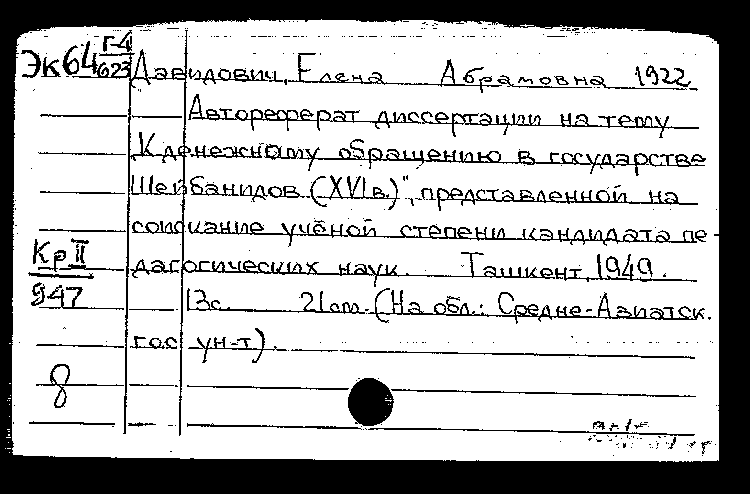 Эк64 Г-4/623
Давидович, Елена Абрамовна 1922
Автореферат диссертации на тему
К денежному обращению в государстве
Шейбанидов (XVI в.)", представленной на
соискание учёной степени кандидата пе-
дагогических наук. Ташкент, 1949.
13с. 21см. (На обл.: Средне-Азиатск.
гос ун-т).
Кр II
947
8